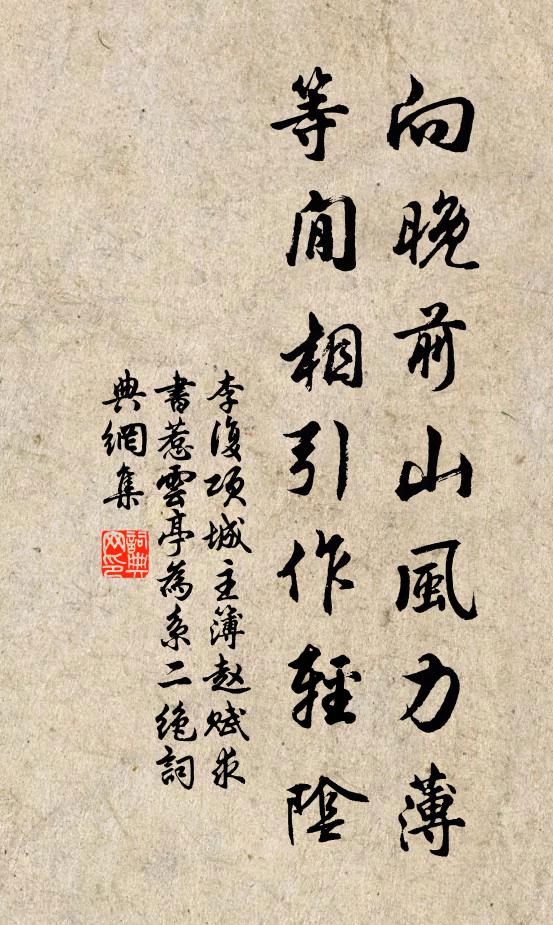 向晚前山風力薄
等閒相引作輕陰
李復項城主簿趙賦求
書惹雲亭為系二絶詞
典網集
詞典网印